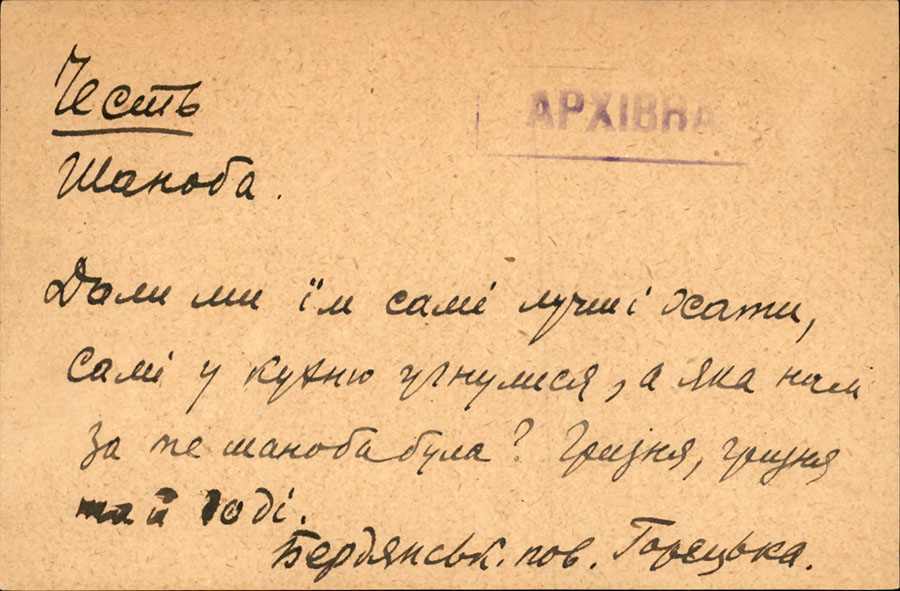 Честь
АРХІВНА
Шаноба.
Дали ми їм самі лучші хати,
самі у кухню угнулися, а яка нам
за те шаноба була? Гризня, гризня
та й годі.
Бердянськ. пов. Горецька.